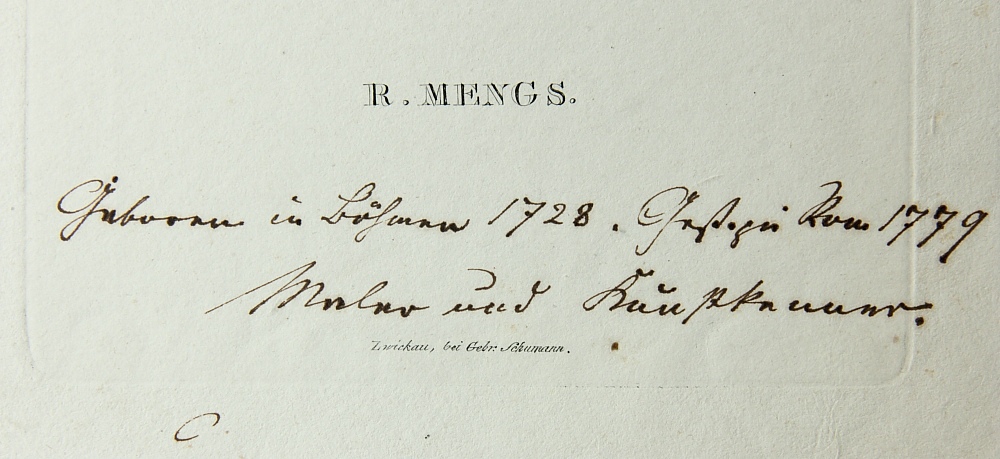 R. MENGS.
Geboren in Böhmen 1728. Gest. zu Rom 1779
Maler und Kunstkenner.
Zwickau, bei Gebr. Schumann.
C